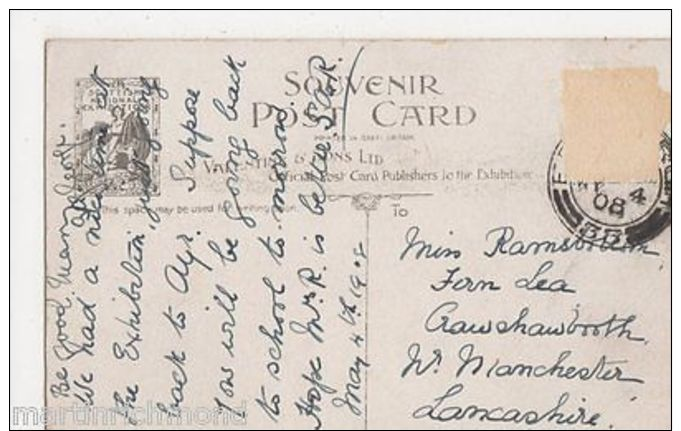 SOUVENIR
POST CARD
PRINTED IN GREAT BRITAIN
VALENTINE & SONS LTD
Official Post Card Publishers to the Exhibition
SCOTTISH
NATIONAL
EXHIBITION
This space may be used for
To
MY 4
08
Be good, Many
We had a nice time at
the Exhibition, just going
back to Ayr. Suppose
you will be going back
to school to morrow.
Hope Mr R. is better
May 4th 1908
Miss Ramsbottom
Fern Lea
Crawshawbooth
Nr Manchester
Lancashire.
martinrichmond